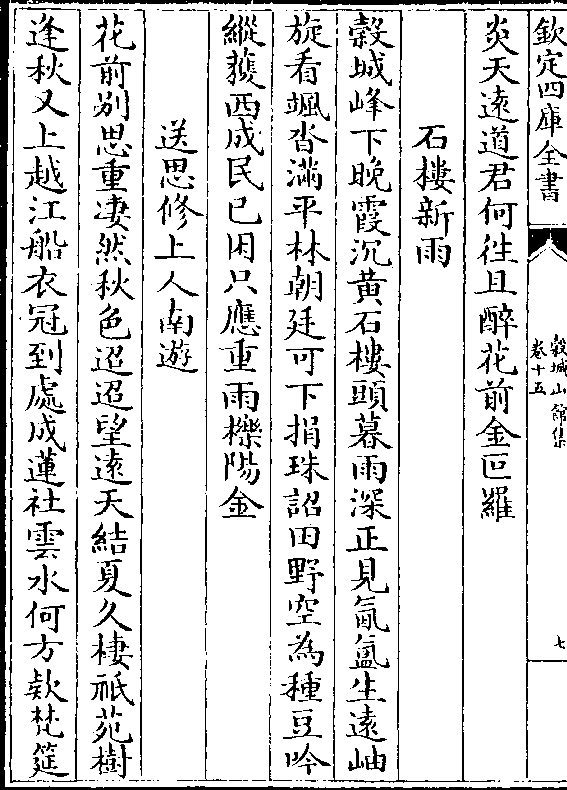 欽定四庫全書
穀城山館集
卷十五
七
炎天遠道君何徃且醉花前金叵羅
石樓新雨
穀城峰下晚霞沉黄石樓頭暮雨深正見氤氲生遠岫
旋看颯沓滿平林朝廷可下捐珠詔田野空為種豆吟
縱䕶西成民已困只應重雨櫟陽金
送思修上人南遊
花前别思重凄然秋色迢迢望遠天結夏久棲祇苑樹
逢秋又上越江船衣冠到處成蓮社雲水何方欵梵筵